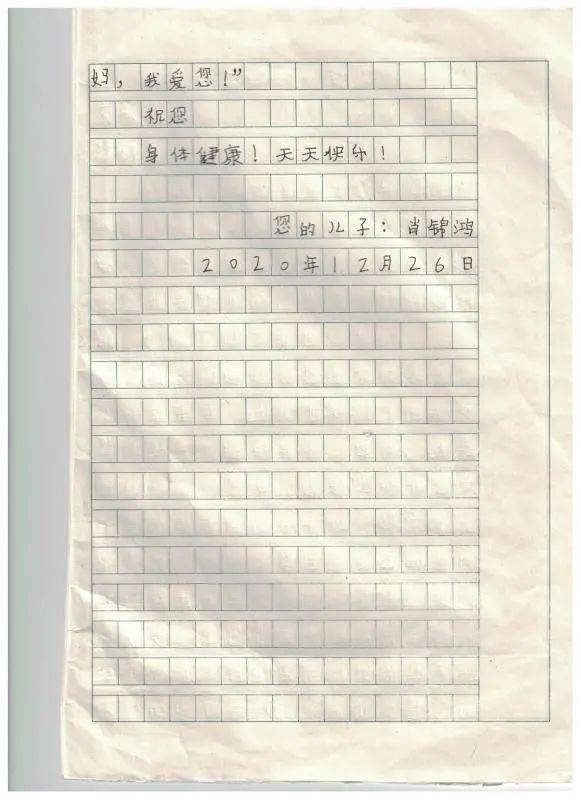 妈，我爱您！”
祝您
身体健康！天天快乐！
您的儿子：肖锦鸿
2020年12月26日